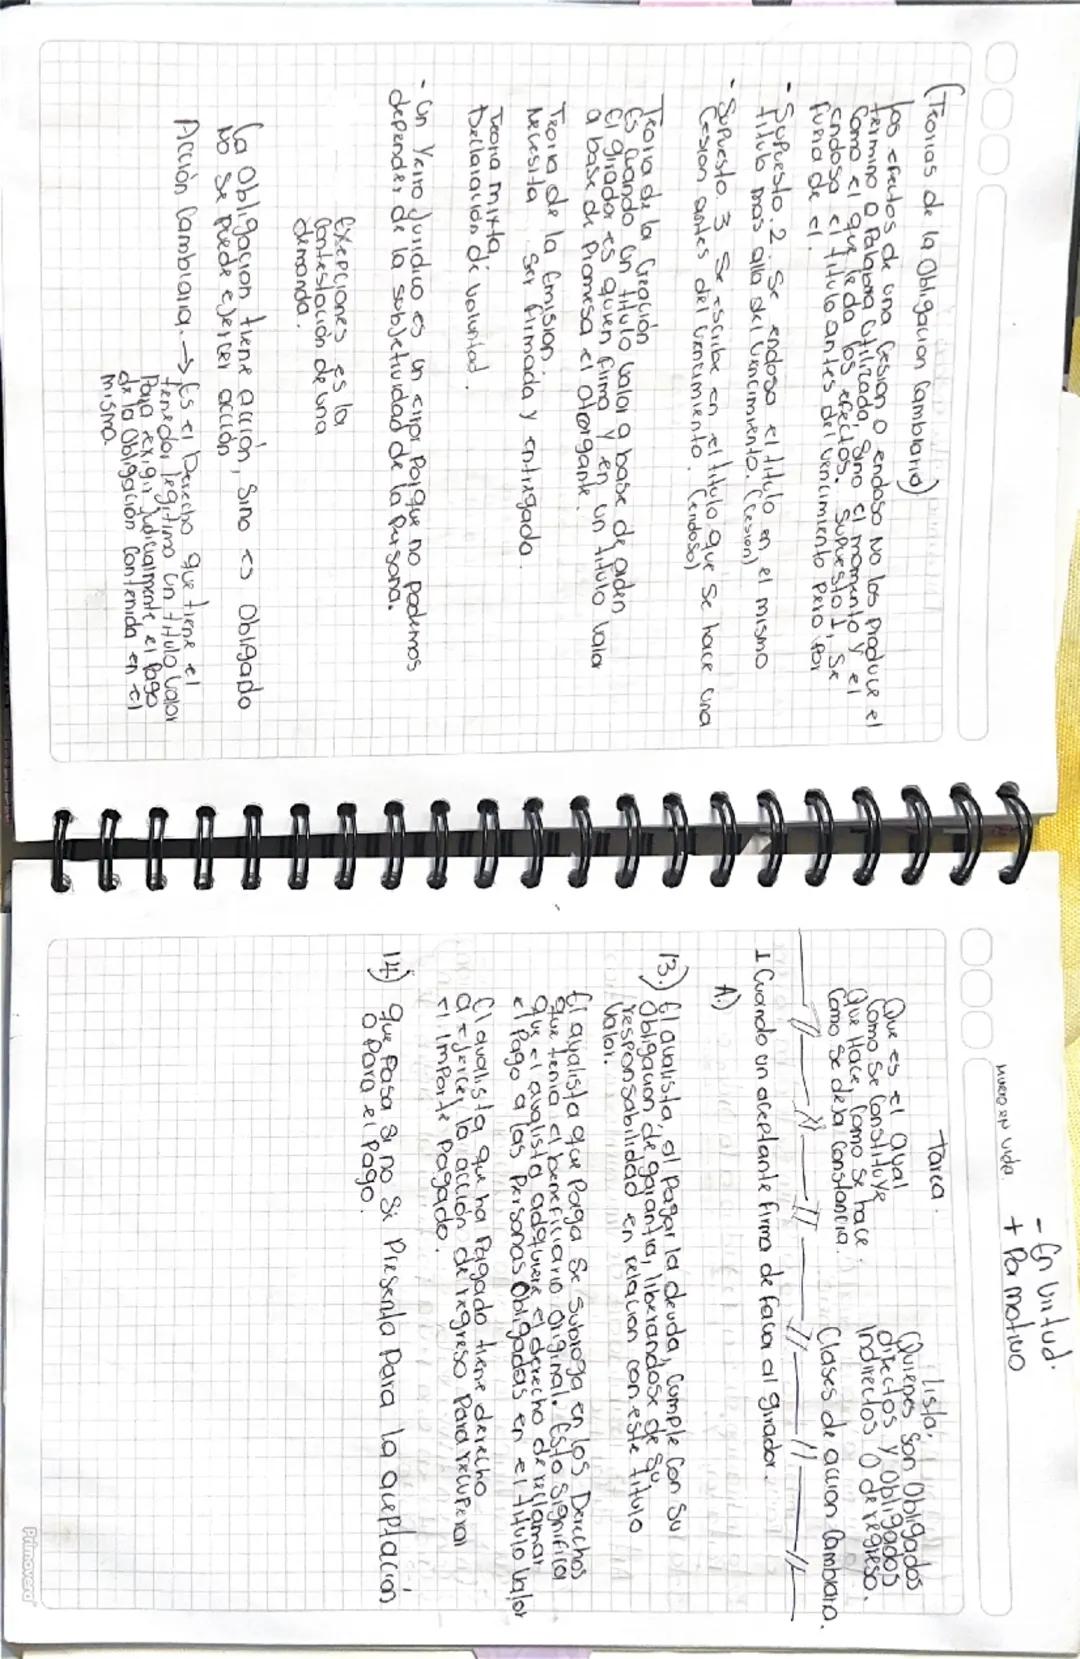 (Teorias de la Obligacion Cambiario)
los efectos de una Cesion o endoso No los Produce el
termino o Palabra Utilizada, Sino el momento y el
Como el que le da los efectos. Supuesto 1, Se
endosa el titulo antes del vencimiento pero por
fuera de el.
- Supuesto. 2. Se endosa el titulo en el mismo
titulo mas alla del vencimiento. (Cesion)
- Supuesto. 3 Se escribe en el titulo que Se hace una
Cesion antes del vencimiento. (endoso)
Teoria de la Creación
Es cuando un titulo valor a base de orden
El girador es quien firma y en un titulo valor
a base de Promesa el otorgante.
Teoria de la Emision.
Necesita Ser firmada y entregada.
Teoria mixta.
Declaración de voluntad.
- Un Yerro Juridico es un error Porque no Podemos
depender de la subjetividad de la Persona.
Exepciones es la
Contestación de una
demanda.
La Obligacion tiene acción, Sino es Obligado
No Se puede ejercer acción
Acción Cambiaria. → Es el Derecho que tiene el
tenedor legitimo un titulo valor
Para exigir judicialmente el Pago
de la Obligación Contenida en el
misma.
- En Virtud.
+ Por motivo
Muero en vida.
Tarea.
Que es el aval
Como Se Constituye
Que Hace, Como Se hace
Como Se deja Constancia.
lista,
Quienes Son Obligados
directos y Obligados
indirectos o de regreso.
Clases de acción Cambiaria.
1 Cuando un aceptante firma de favor al girador.
A.)
13.) El avalista, al pagar la deuda, Cumple Con Su
Obligacion de garantia, liberandose de su
responsabilidad en relacion con este titulo
Valor.
El avalista que Paga Se Subroga en los Derechos
que tenia el beneficiario Original. Esto Significa
que el avalista adquiere el derecho de reclamar
el Pago a las Personas Obligadas en el titulo valor
El avalista que ha Pagado tiene derecho
a ejercer la acción de regreso Para recuperar
el importe Pagado.
14) que Pasa Si no Se Presenta Para la aceptación
o Para el Pago.
Primavera